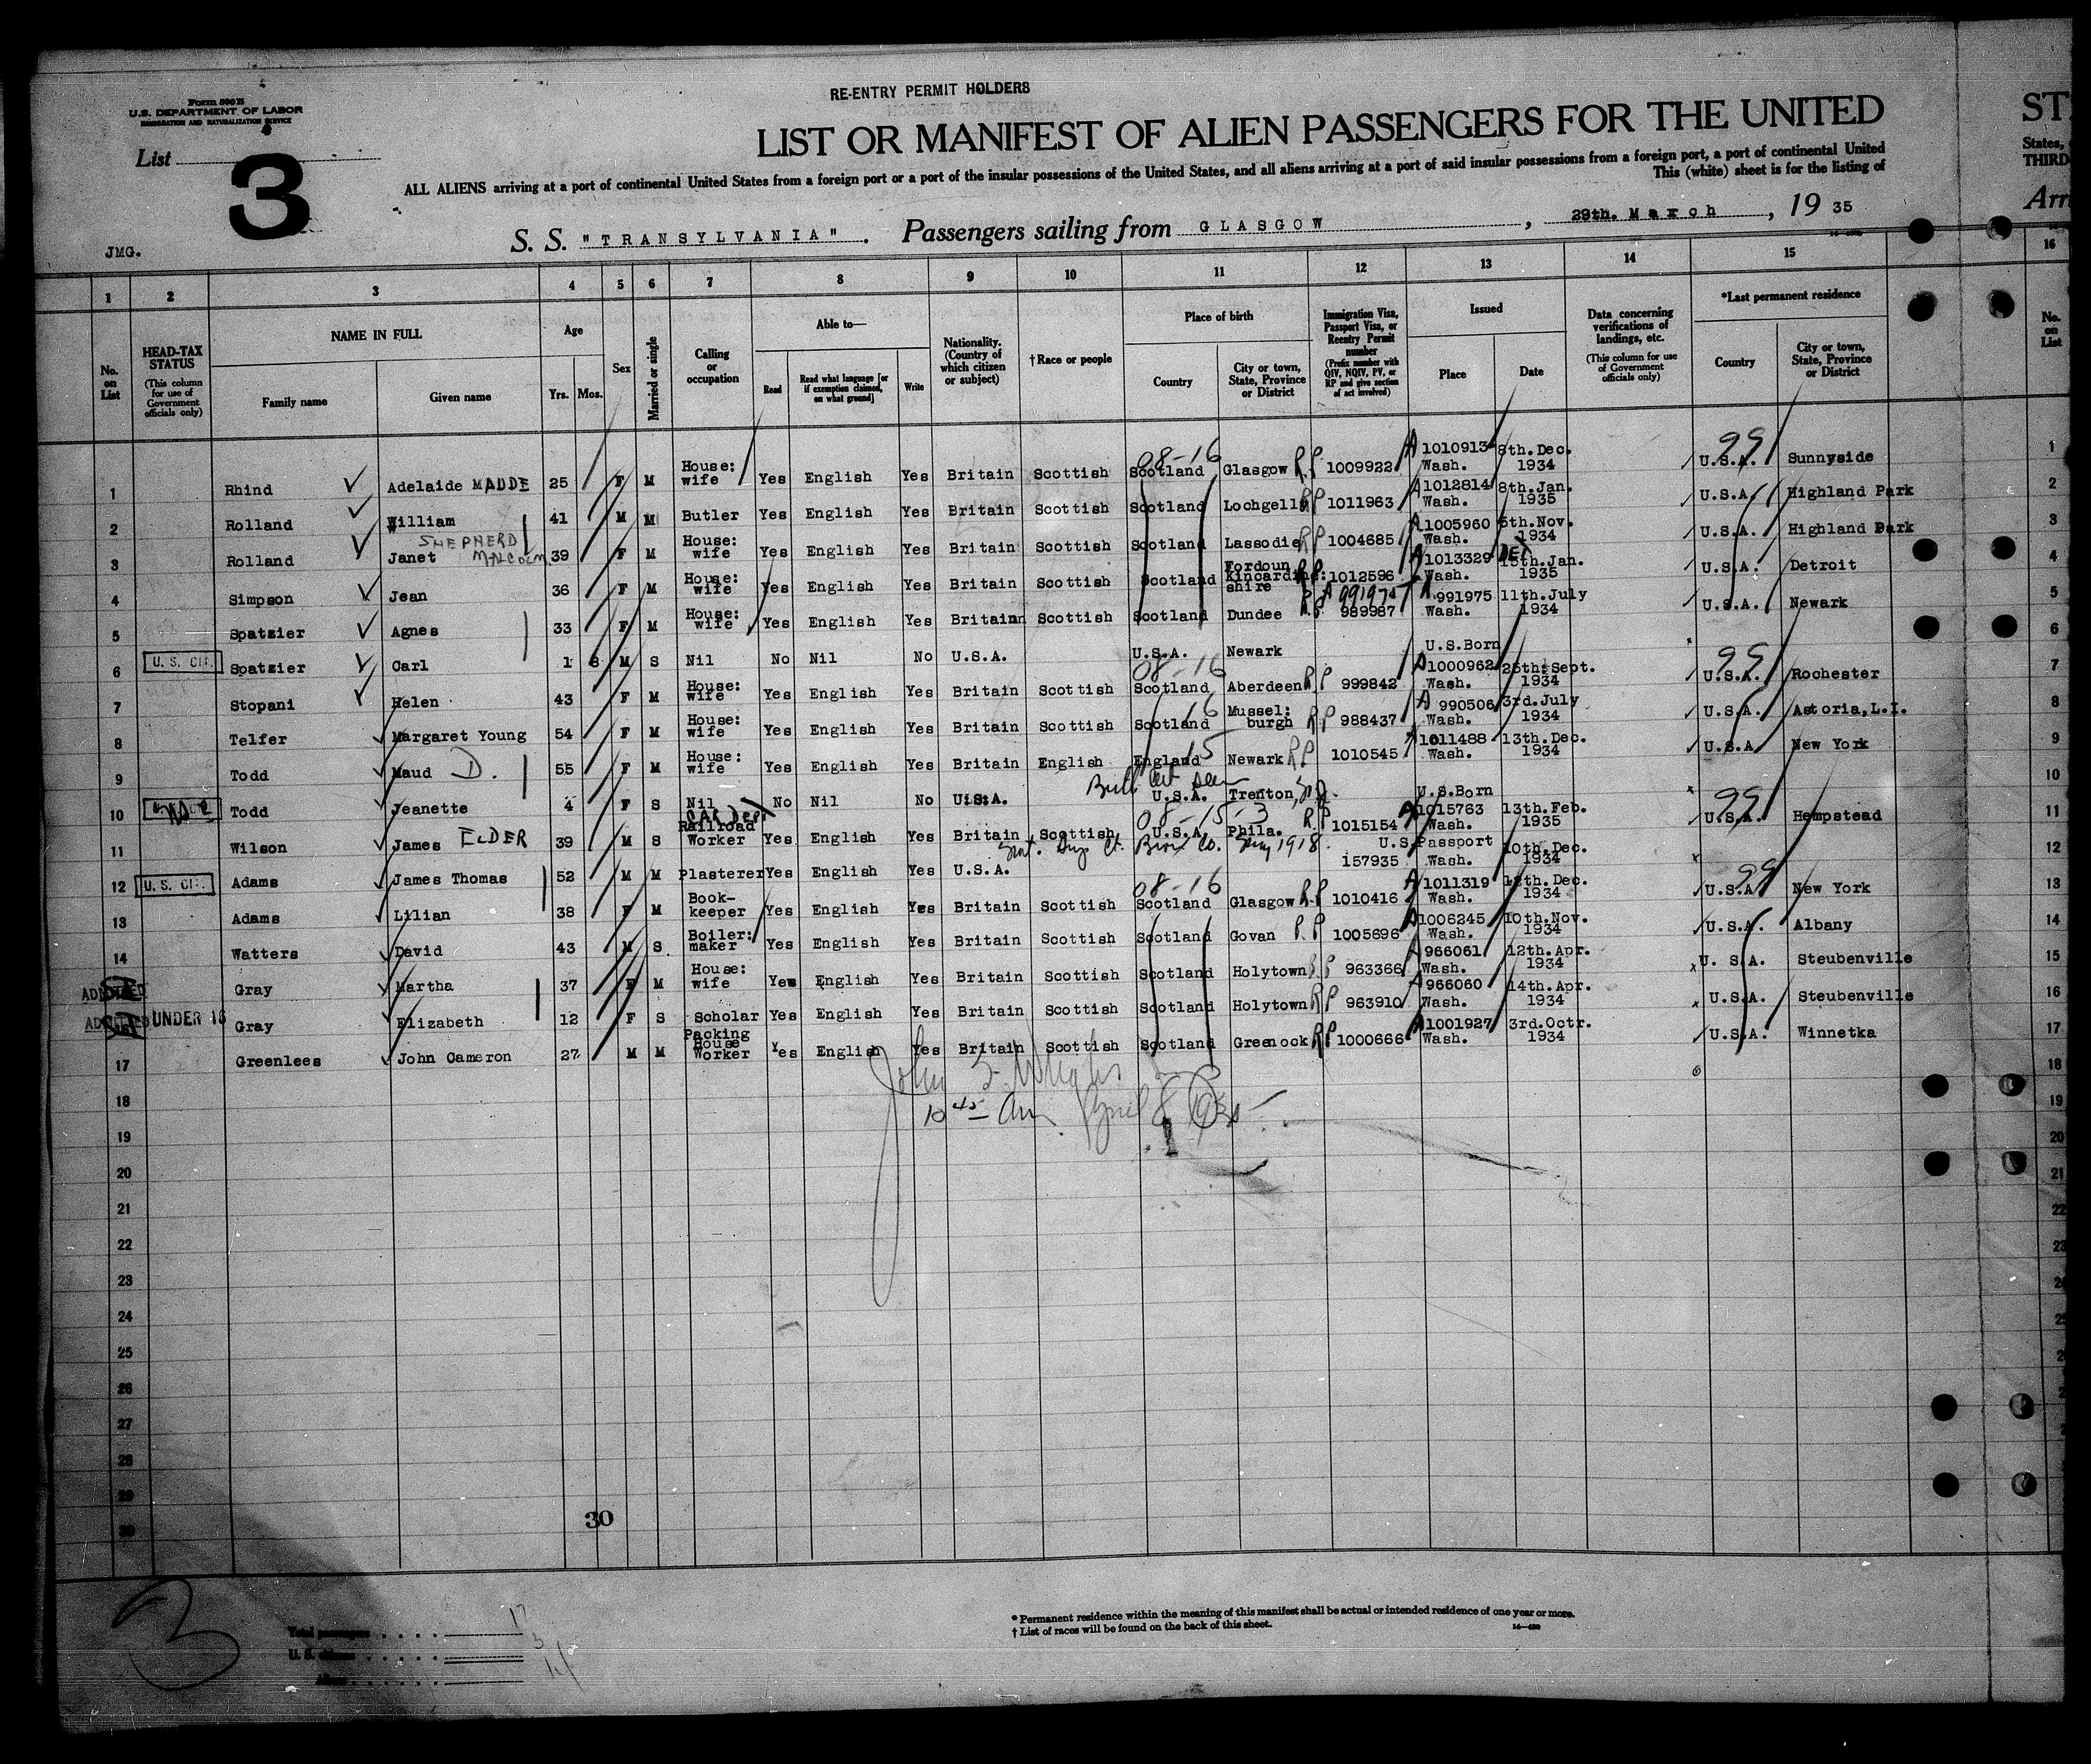 RE-ENTRY PERMIT HOLDERS
Form 500 B
U.S. DEPARTMENT OF LABOR
IMMIGRATION AND NATURALIZATION SERVICE
LIST OR MANIFEST OF ALIEN PASSENGERS FOR THE UNITED
ST
List 3
ALL ALIENS arriving at a port of continental United States from a foreign port or a port of the insular possessions of the United States, and all aliens arriving at a port of said insular possessions from a foreign port, a port of continental United
States,
This (white) sheet is for the listing of
THIRD
JMG.
S. S. "TRANSYLVANIA". Passengers sailing from GLASGOW, 29th. March, 19 35
Arri
1 2 3 4 5 6 7 8 9 10 11 12 13 14 15 16
No. on List
HEAD-TAX STATUS
(This column for use of Government officials only)
NAME IN FULL
Family name
Given name
Age
Yrs. Mos.
Sex
Married or single
Calling or occupation
Able to—
Read
Read what language [or if exemption claimed, on what ground]
Write
Nationality. (Country of which citizen or subject)
†Race or people
Place of birth
Country
City or town, State, Province or District
Immigration Visa, Passport Visa, or Reentry Permit number
(Prefix number with QIV, NQIV, PV, or RP and give section of act involved)
Issued
Place
Date
Data concerning verifications of landings, etc.
(This column for use of Government officials only)
*Last permanent residence
Country
City or town, State, Province or District
No. on List
1 Rhind Adelaide MAUDE 25 F M House: wife Yes English Yes Britain Scottish 08-16 Scotland Glasgow RP 1009922 A 1010913 Wash. 8th.Dec. 1934 99 U.S.A. Sunnyside 1
2 Rolland William 41 M M Butler Yes English Yes Britain Scottish Scotland Lochgelly RP 1011963 A 1012814 Wash. 8th.Jan. 1935 U.S.A. Highland Park 2
3 Rolland Janet SHEPHERD MALCOLM 39 F M House: wife Yes English Yes Britain Scottish Scotland Lassodie RP 1004685 A 1005960 Wash. 5th.Nov. 1934 U.S.A. Highland Park 3
4 Simpson Jean 36 F M House: wife Yes English Yes Britain Scottish Scotland Fordoun Kincardine: shire RP 1012596 A 1013329 Wash. 15th.Jan. 1935 U.S.A. Detroit 4
5 Spatzier Agnes 33 F M House: wife Yes English Yes Britain Scottish Scotland Dundee RP A 991975 989987 A 991975 Wash. 11th.July 1934 U.S.A. Newark 5
6 U. S. CIT. Spatzier Carl 1 8 M S Nil No Nil No U.S.A. U.S.A. Newark U.S.Born 6
7 Stopani Helen 43 F M House: wife Yes English Yes Britain Scottish 08-16 Scotland Aberdeen RP 999842 A 1000962 Wash. 25th.Sept. 1934 99 U.S.A. Rochester 7
8 Telfer Margaret Young 54 F M House: wife Yes English Yes Britain Scottish 16 Scotland Mussel: burgh RP 988437 A 990506 Wash. 3rd.July 1934 U.S.A. Astoria,L.I. 8
9 Todd Maud D. 55 F M House: wife Yes English Yes Britain English 15 England Newark RP 1010545 A 1011488 Wash. 13th.Dec. 1934 U.S.A. New York 9
10 Todd Jeanette 4 F S Nil No Nil No U.S.A. U.S.A. Trenton, U.S.Born 10
11 Wilson James ELDER 39 M S CAR DEPT Railroad Worker Yes English Yes Britain Scottish 08-15-3 U.S.A. Phila. RP 1015154 A 1015763 Wash. 13th.Feb. 1935 99 U.S.A. Hempstead 11
12 U. S. CIT. Adams James Thomas 52 M M Plasterer Yes English Yes U.S.A. Sup Ct. Bronx Co. 1918 U.S.Passport 157935 Wash. 10th.Dec. 1934 12
13 Adams Lilian 38 F M Book-keeper Yes English Yes Britain Scottish 08-16 Scotland Glasgow RP 1010416 A 1011319 Wash. 12th.Dec. 1934 99 U.S.A. New York 13
14 Watters David 43 M S Boiler: maker Yes English Yes Britain Scottish Scotland Govan RP 1005696 A 1006245 Wash. 10th.Nov. 1934 U.S.A. Albany 14
15 ADMITTED Gray Martha 37 F M House: wife Yes English Yes Britain Scottish Scotland Holytown RP 963366 A 966061 Wash. 12th.Apr. 1934 U. S.A. Steubenville 15
16 ADMITTED UNDER 16 Gray Elizabeth 12 F S Scholar Yes English Yes Britain Scottish Scotland Holytown RP 963910 A 966060 Wash. 14th.Apr. 1934 U.S.A. Steubenville 16
17 Greenlees John Cameron 27 M M Packing House Worker Yes English Yes Britain Scottish Scotland Greenock RP 1000666 A 1001927 Wash. 3rd.Octr. 1934 U.S.A. Winnetka 17
18 18
10 45 am April 8 1935
19 19
20 20
21 21
22 22
23 23
24
25
26
27
28
29
30
30
3
Total passengers 17
U. S. citizens 3
Aliens 14
* Permanent residence within the meaning of this manifest shall be actual or intended residence of one year or more.
† List of races will be found on the back of this sheet.